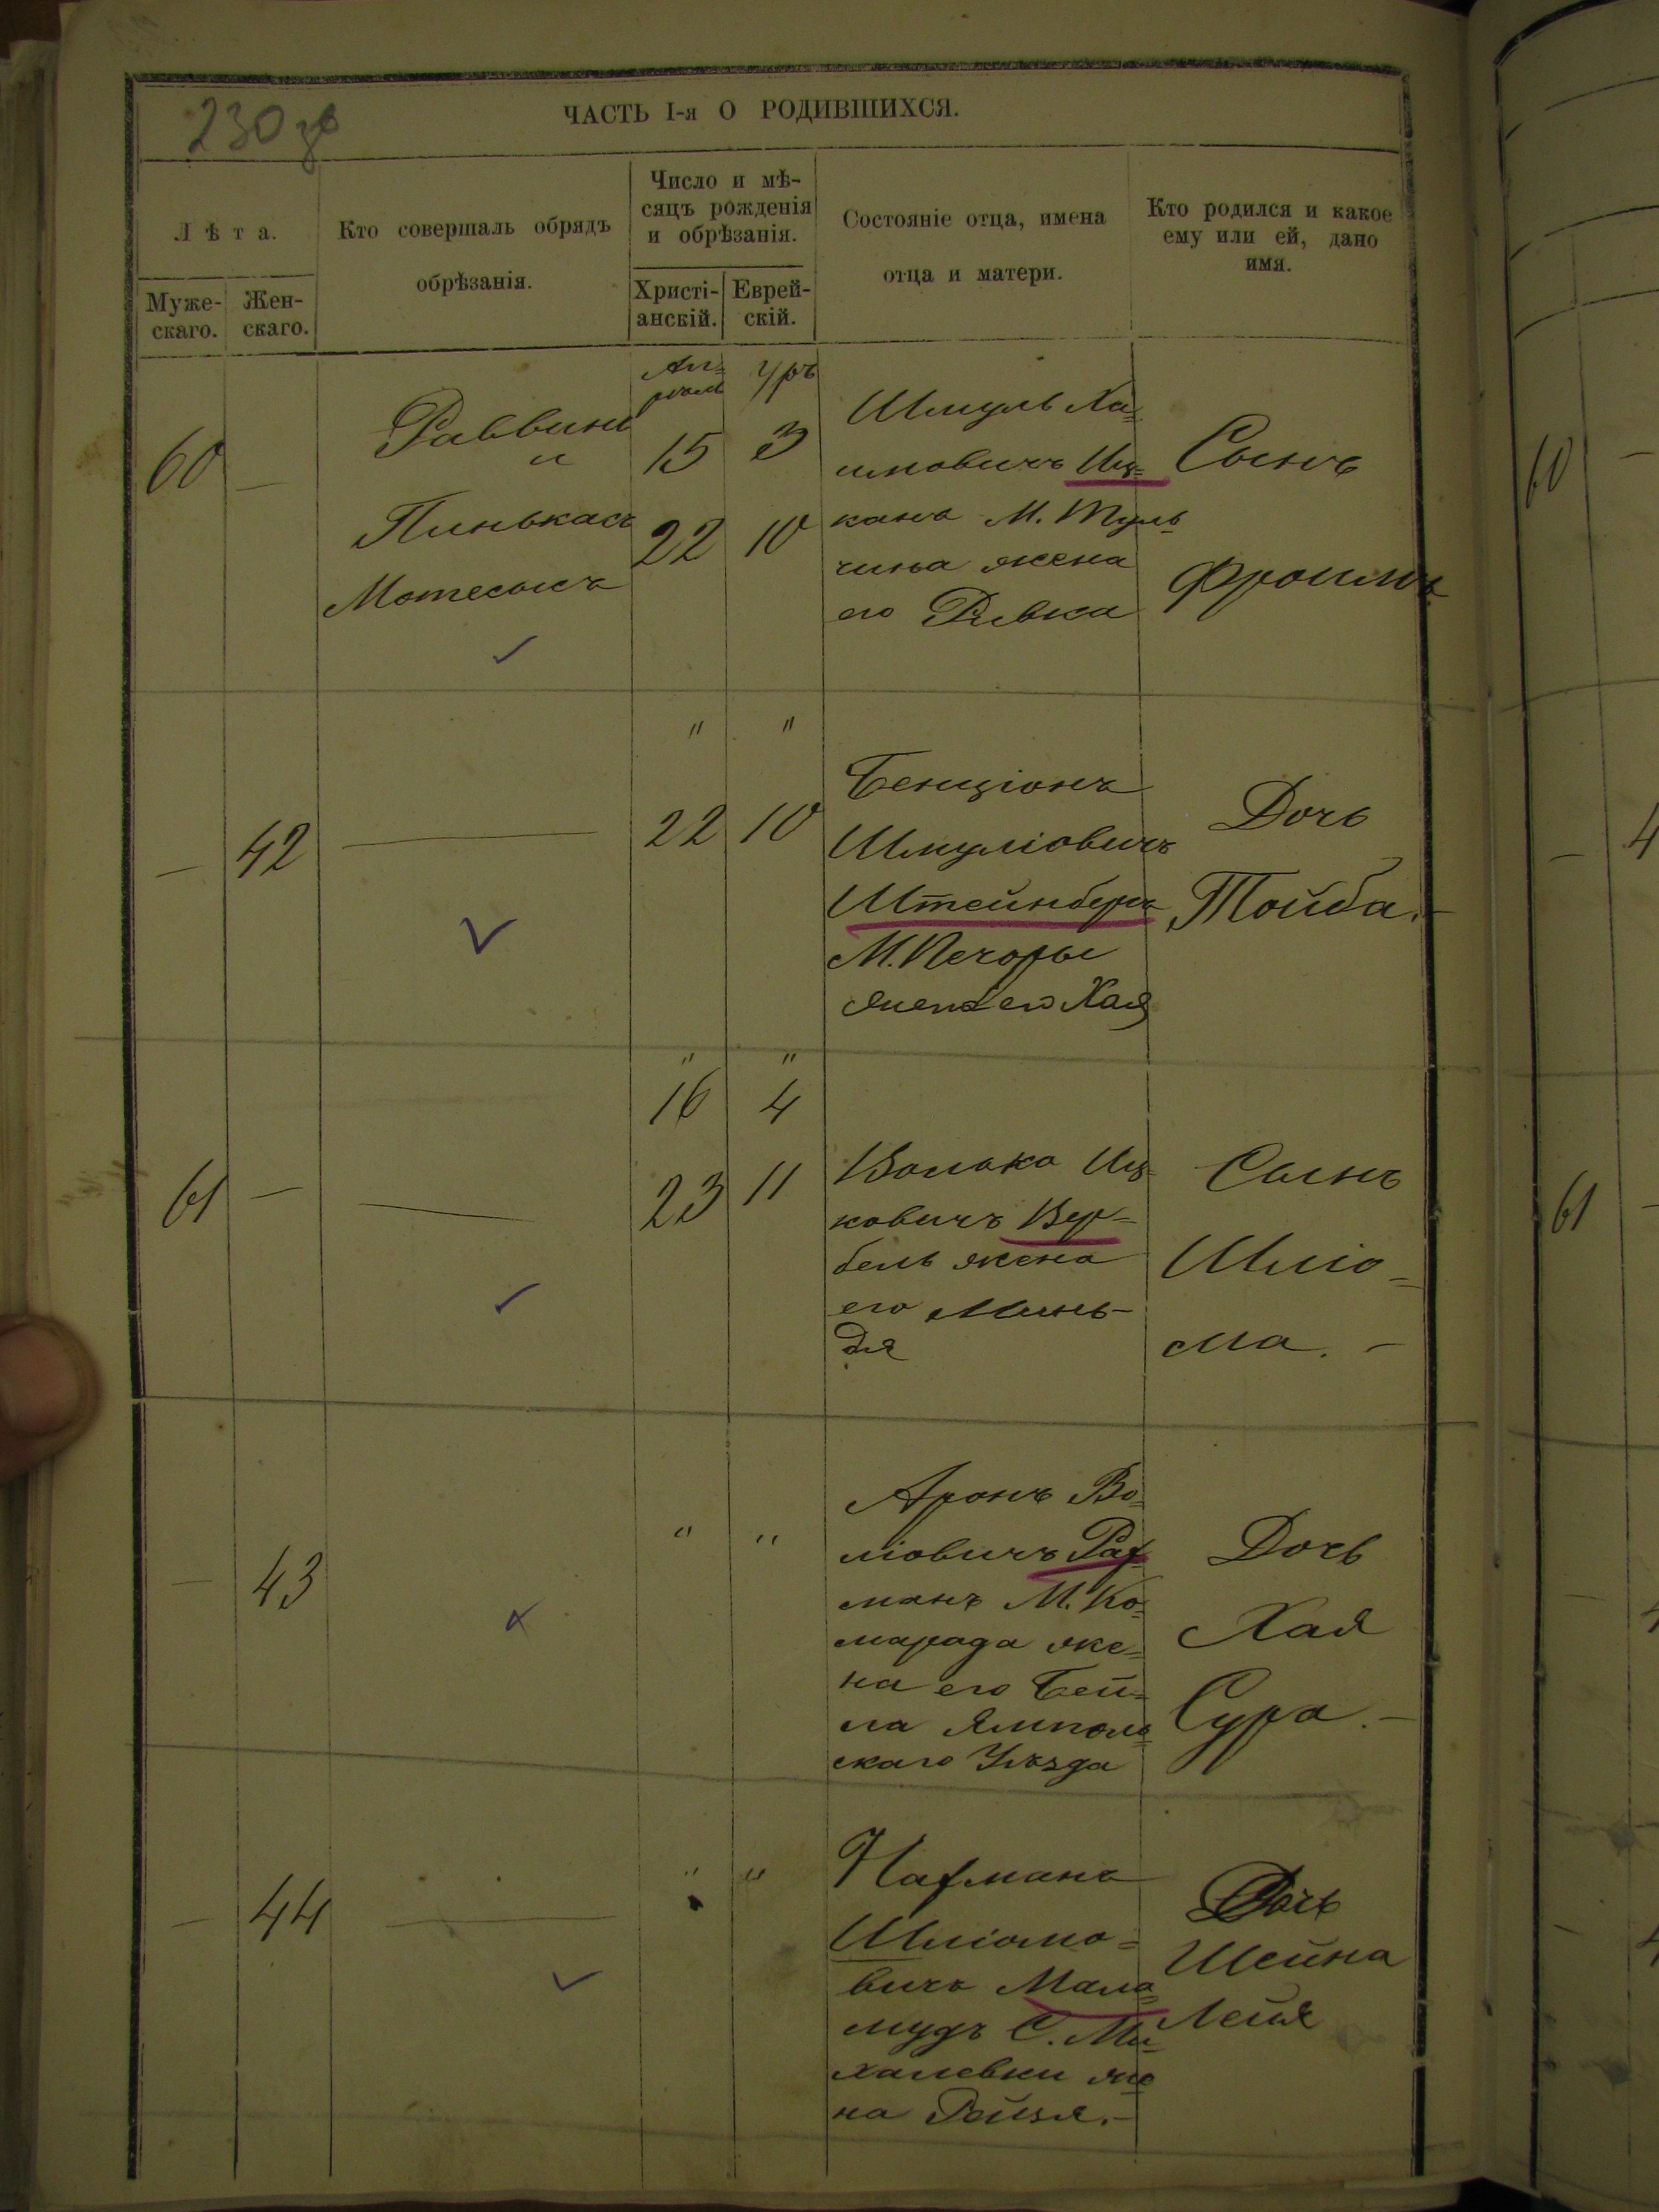 230 зв
ЧАСТЬ I-я О РОДИВШИХСЯ.
Лѣта.
Муже-
скаго.
Жен-
скаго.
Кто совершалъ обрядъ
обрѣзанія.
Число и мѣ-
сяцъ рожденія
и обрѣзанія.
Христі-
анскій.
Еврей-
скій.
Состояніе отца, имена
отца и матери.
Кто родился и какое
ему или ей, дано
имя.
60
—
Раввинъ
и
Пинькасъ
Мотесысъ
Ап=
рѣль
15
22
Уръ
3
10
Шмуль Ха=
имовичъ Иц=
канъ М. Туль=
чина жена
его Ривка
Сынъ
Фроимъ
—
42
"
22
"
10
Бенціонъ
Шмуліовичъ
Штейнбергъ
М. Печоры
жена его Хая
Дочь
Тойба.—
61
—
"
16
23
"
4
11
Волько Иц-
ковичъ Вер-
бель жена
его Минь-
дя
Сынъ
Шліо=
ма. —
—
43
"
"
Аронъ Во=
ліовичъ Раф
манъ М. Ко=
марада же=
на его Бей=
ла Ямполь=
скаго Уѣзда
Дочь
Хая
Сура.—
—
44
"
"
Нафманъ
Шліомо=
вичъ Мала=
мудъ С. Ми=
халевки же
на Рейзя.—
Дочь
Шейна
Лейя
60
—
—
4
61